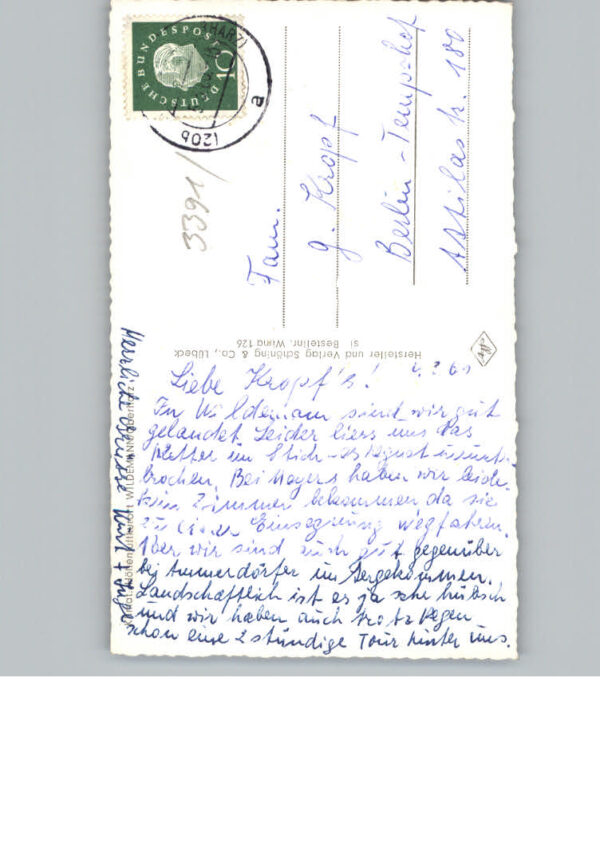 DEUTSCHE BUNDESPOST
10
(HARZ)
(20b)
a
3391/
Fam.
G. Kropf
Berlin-Tempelhof
Attilastr. 180
Hersteller und Verlag Schöning & Co., Lübeck
si Bestellnr. Wima 126
Liebe Kropf's!
In Wildemann sind wir gut
gelandet. Leider liess uns das
Wetter im Stich - es regnet ununter-
brochen. Bei Meyers haben wir leider
kein Zimmer bekommen da sie
zu einer Einsegnung wegfahren.
Aber wir sind auch gut gegenüber
bei Ammerdörfer
Landschaftlich ist es ja sehr hübsch
und wir haben auch trotz Regen
schon eine 2 stündige Tour hinter uns.
Herzliche Grüsse
Höhenluftkurort WILDEMANN/Oberharz